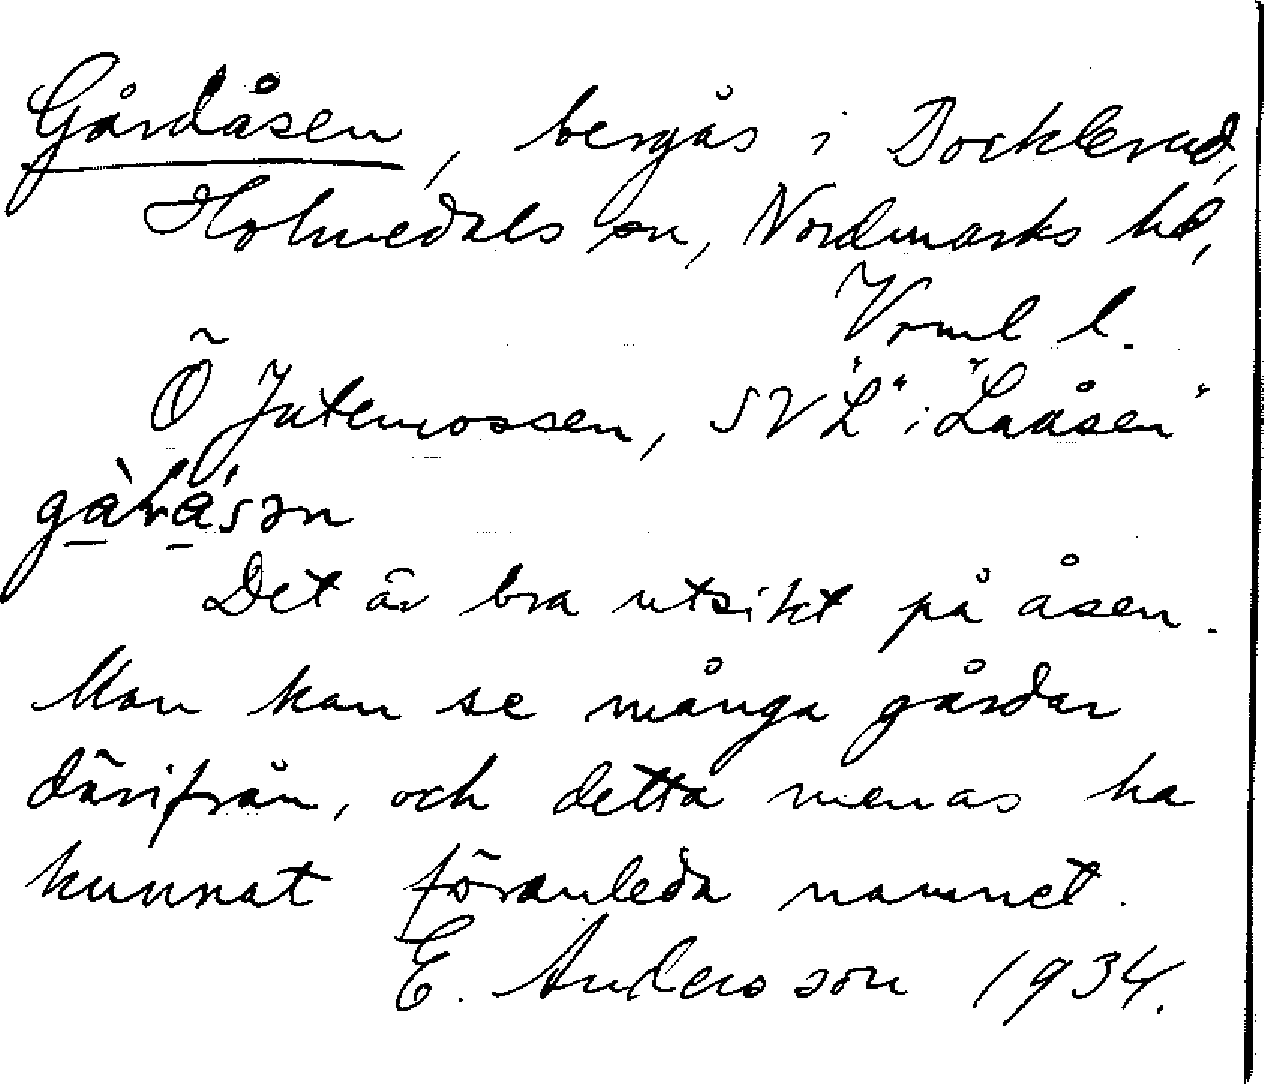 Gårdåsen, bergås i Docklerud,
Holmedals sn, Nordmarks hd,
Vrml l.
Ö Jutemossen, SV "L" i "Laåsen"
gàrásən
Det är bra utsikt på åsen.
Man kan se många gårdar
därifrån, och detta menas ha
kunnat föranleda namnet.
E. Andersson 1934.